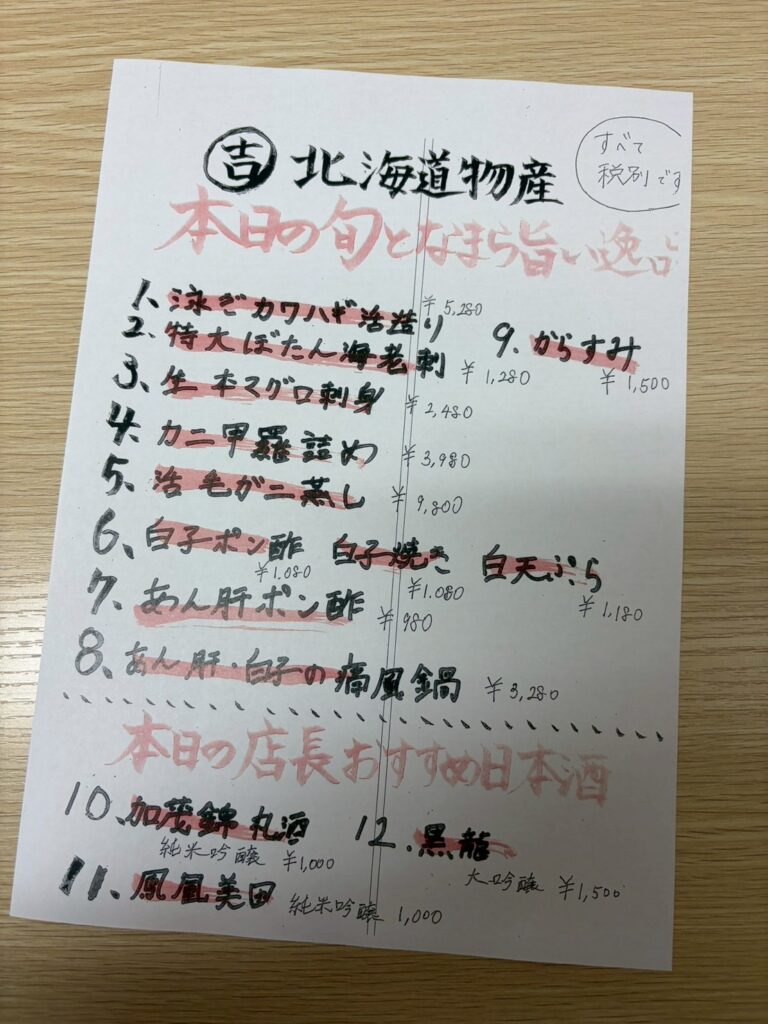 すべて
税別です
吉 北海道物産
本日の旬となまら旨い逸品
1、泳ぎカワハギ活造り ¥5,280
2、特大ぼたん海老刺 ¥1,280
9、からすみ ¥1,500
3、生本マグロ刺身 ¥2,480
4、カニ甲羅詰め ¥3,980
5、活毛がニ蒸し ¥9,800
6、白子ポン酢 白子焼き 白天ぷら
¥1.080 ¥1.080 ¥1,180
7、あん肝ポン酢 ¥980
8、あん肝・白子の痛風鍋 ¥3,280
本日の店長おすすめ日本酒
10、加茂錦 丸酒
純米吟醸 ¥1,000
12、黒龍
大吟醸 ¥1,500
11、鳳凰美田 純米吟醸 1,000